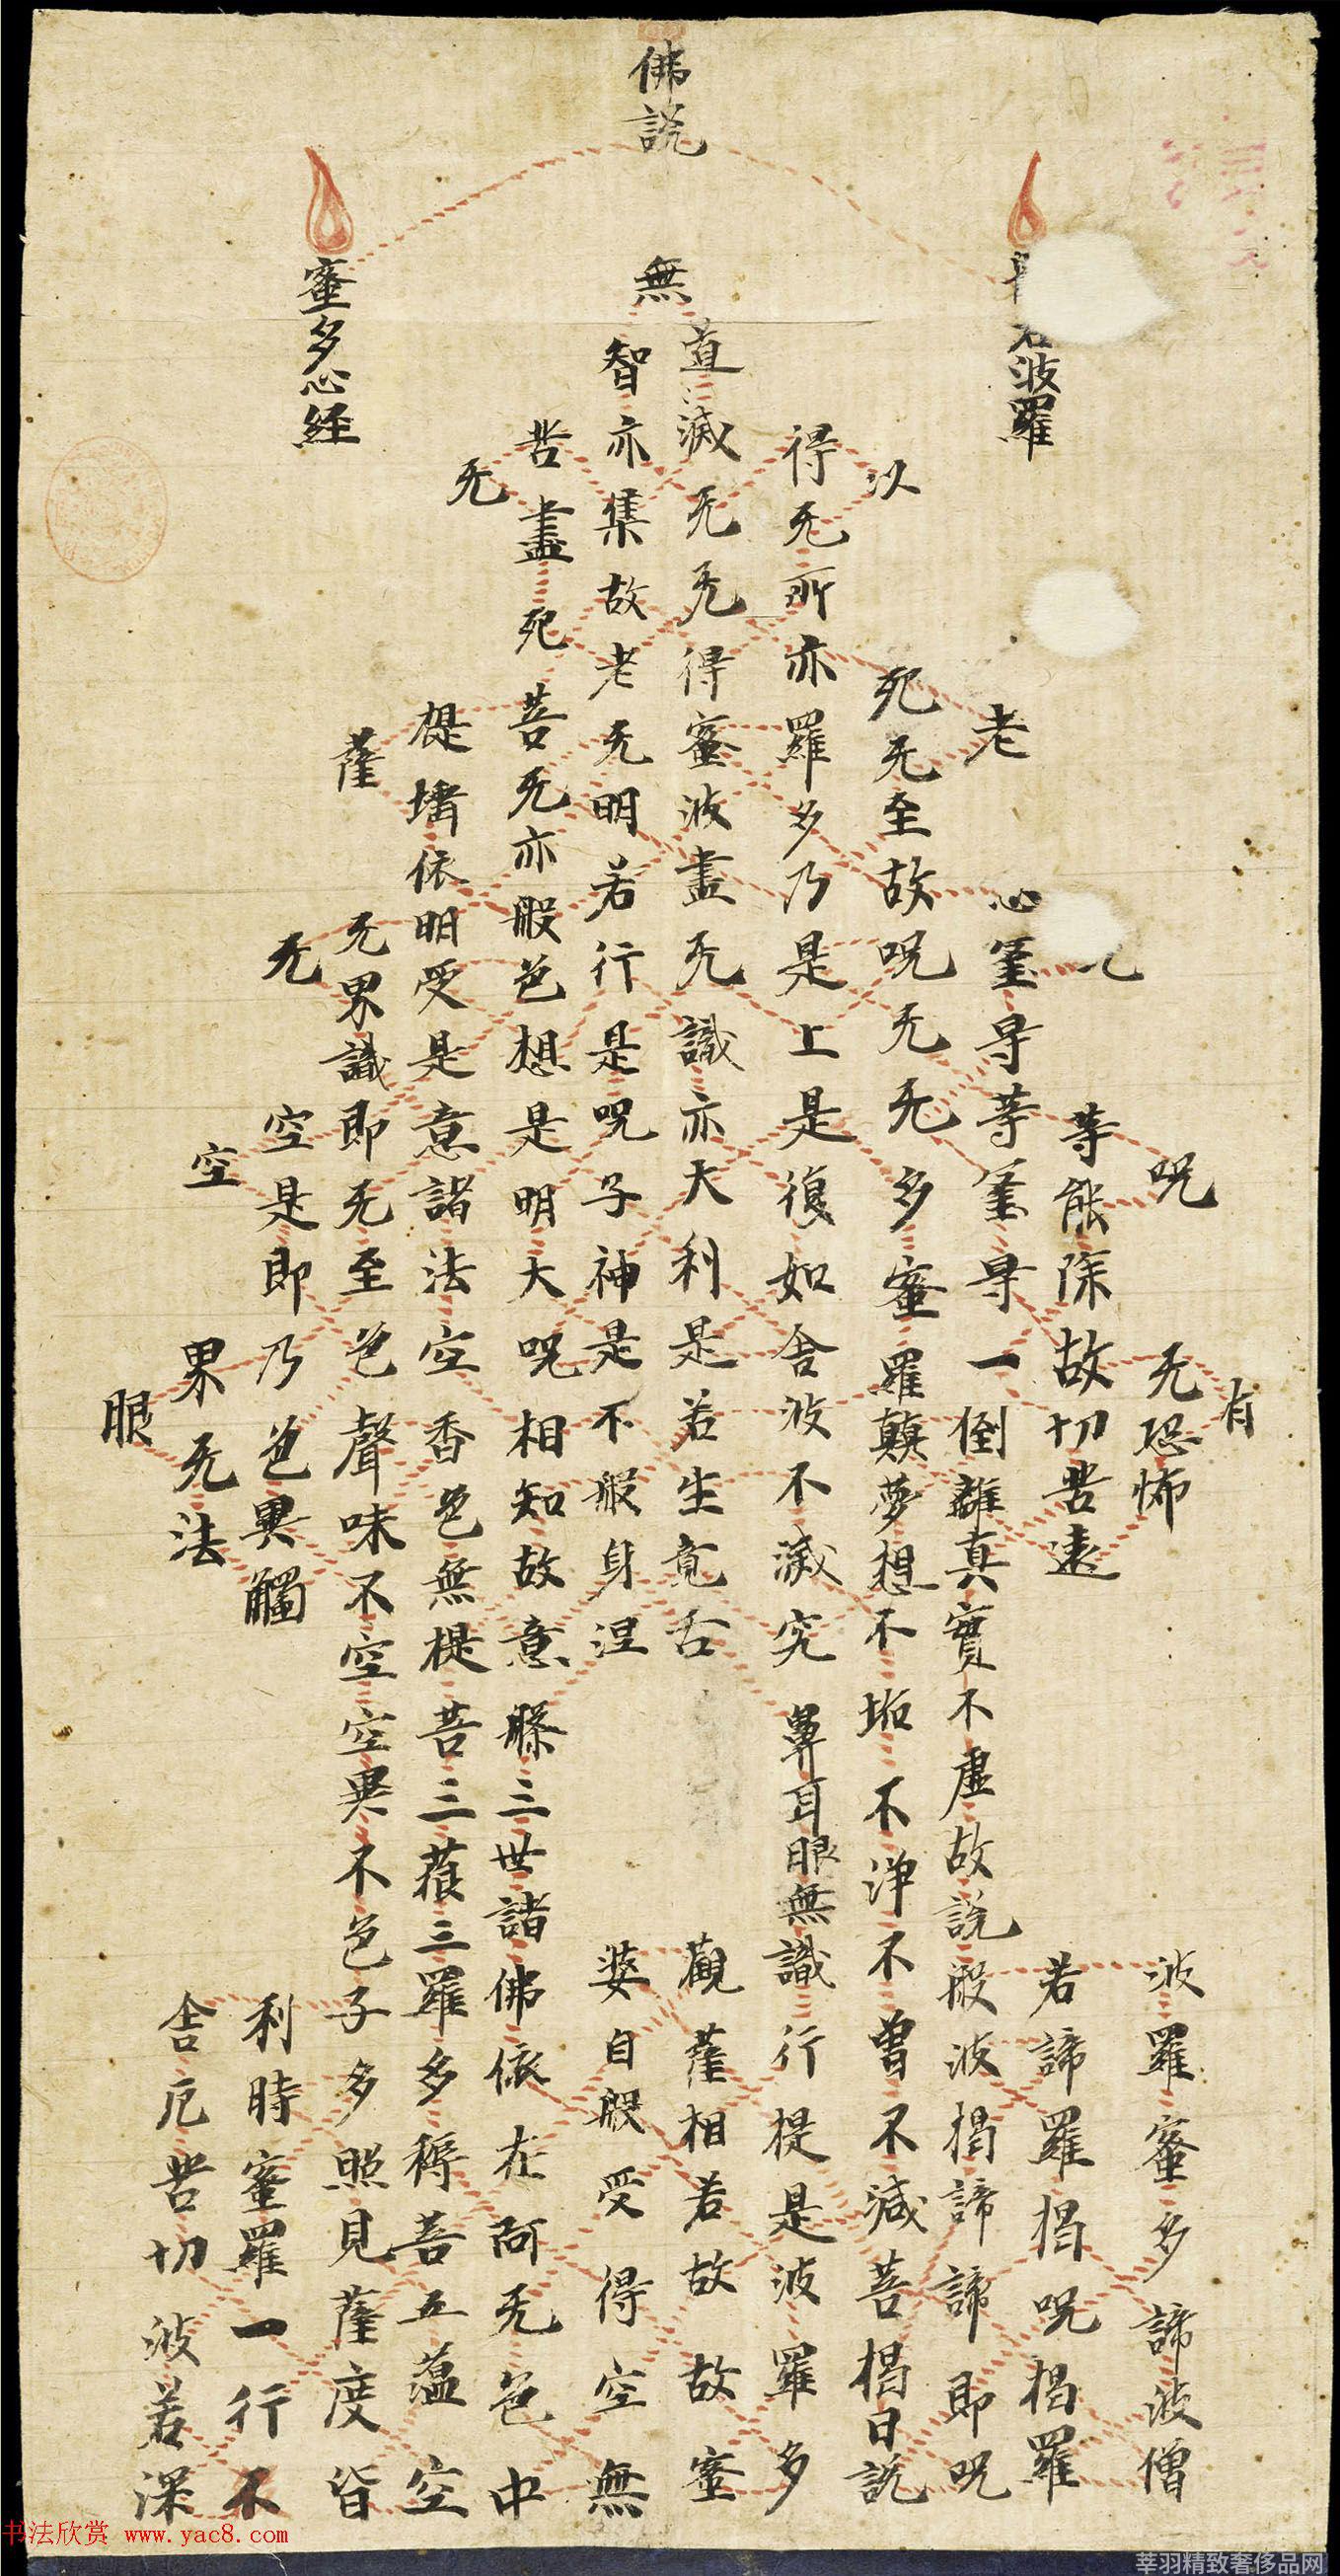 佛說
若波羅
蜜多心經
有
呪
无恐怖
波羅蜜多諦波僧
等能除故切苦遠
若諦羅揭呪揭羅
老
心罣㝵等罣㝵一倒離真實不虛故說般波揭諦諦即呪
以
死无至故呪无无多蜜羅顛夢想不垢不淨不曽不減菩揭曰說
得无所亦羅多乃是上是復如舍波不滅究鼻耳眼無識行提是波羅多
道滅无无得蜜波盡无識亦大利是若生竟舌
觀薩相若故故蜜
無
智亦集故老无明若行是呪子神是不般身涅
婆自般受得空無
苦盡死菩无亦般色想是明大呪相知故意滕三世諸佛依在阿无色中
无
提埵依明受是意諸法空香色無提菩三藐三羅多稱菩五蕰空
薩
无界識即无至色聲味不空空異不色子多照見薩度皆
无
空是即乃色異觸
利時蜜羅一行不
空
界无法
舍厄苦切波若深
眼
书法欣赏 www.yac8.com
莘羽精致奢侈品网